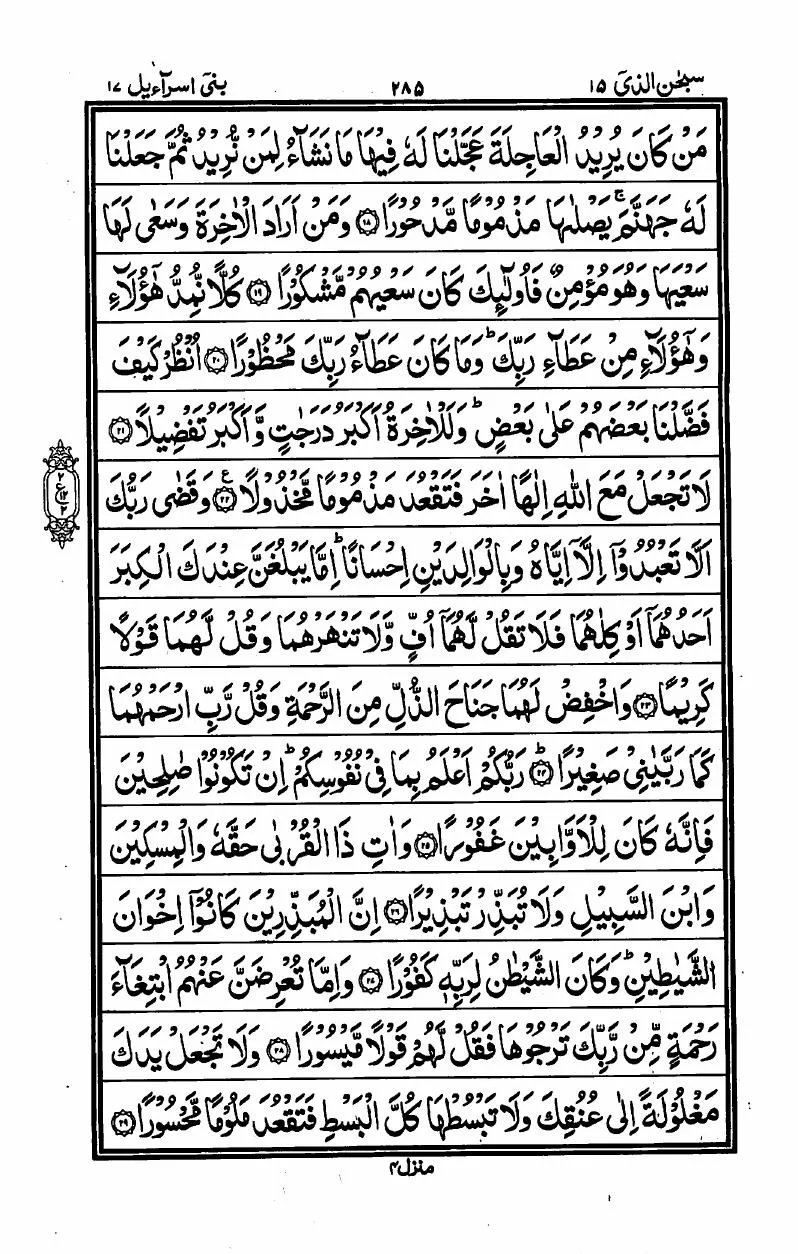 سبحٰن الذیٓ ۱۵
۲۸۵
بنیٓ اسرآءیل ۱۷
مَنْ كَانَ يُرِيْدُ الْعَاجِلَةَ عَجَّلْنَا لَهٗ فِيْهَا مَا نَشَآءُ لِمَنْ نُّرِيْدُ ثُمَّ جَعَلْنَا
لَهٗ جَهَنَّمَ ۚ يَصْلٰىهَا مَذْمُوْمًا مَّدْحُوْرًا ۝۱۸ وَمَنْ اَرَادَ الْاٰخِرَةَ وَسَعٰى لَهَا
سَعْيَهَا وَهُوَ مُؤْمِنٌ فَاُولٰٓئِكَ كَانَ سَعْيُهُمْ مَّشْكُوْرًا ۝۱۹ كُلًّا نُّمِدُّ هٰٓؤُلَآءِ
وَهٰٓؤُلَآءِ مِنْ عَطَآءِ رَبِّكَ ؕ وَمَا كَانَ عَطَآءُ رَبِّكَ مَحْظُوْرًا ۝۲۰ اُنْظُرْ كَيْفَ
فَضَّلْنَا بَعْضَهُمْ عَلٰى بَعْضٍ ؕ وَلَلْاٰخِرَةُ اَكْبَرُ دَرَجٰتٍ وَّاَكْبَرُ تَفْضِيْلًا ۝۲۱
لَا تَجْعَلْ مَعَ اللّٰهِ اِلٰهًا اٰخَرَ فَتَقْعُدَ مَذْمُوْمًا مَّخْذُوْلًا ۝۲۲ ع وَقَضٰى رَبُّكَ
اَلَّا تَعْبُدُوْٓا اِلَّآ اِيَّاهُ وَبِالْوَالِدَيْنِ اِحْسَانًا ؕ اِمَّا يَبْلُغَنَّ عِنْدَكَ الْكِبَرَ
اَحَدُهُمَآ اَوْ كِلٰهُمَا فَلَا تَقُلْ لَّهُمَآ اُفٍّ وَّلَا تَنْهَرْهُمَا وَقُلْ لَّهُمَا قَوْلًا
كَرِيْمًا ۝۲۳ وَاخْفِضْ لَهُمَا جَنَاحَ الذُّلِّ مِنَ الرَّحْمَةِ وَقُلْ رَّبِّ ارْحَمْهُمَا
كَمَا رَبَّيٰنِيْ صَغِيْرًا ؕ ۝۲۴ رَبُّكُمْ اَعْلَمُ بِمَا فِيْ نُفُوْسِكُمْ ؕ اِنْ تَكُوْنُوْا صٰلِحِيْنَ
فَاِنَّهٗ كَانَ لِلْاَوَّابِيْنَ غَفُوْرًا ۝۲۵ وَاٰتِ ذَا الْقُرْبٰى حَقَّهٗ وَالْمِسْكِيْنَ
وَابْنَ السَّبِيْلِ وَلَا تُبَذِّرْ تَبْذِيْرًا ۝۲۶ اِنَّ الْمُبَذِّرِيْنَ كَانُوْٓا اِخْوَانَ
الشَّيٰطِيْنِ ؕ وَكَانَ الشَّيْطٰنُ لِرَبِّهٖ كَفُوْرًا ۝۲۷ وَاِمَّا تُعْرِضَنَّ عَنْهُمُ ابْتِغَآءَ
رَحْمَةٍ مِّنْ رَّبِّكَ تَرْجُوْهَا فَقُلْ لَّهُمْ قَوْلًا مَّيْسُوْرًا ۝۲۸ وَلَا تَجْعَلْ يَدَكَ
مَغْلُوْلَةً اِلٰى عُنُقِكَ وَلَا تَبْسُطْهَا كُلَّ الْبَسْطِ فَتَقْعُدَ مَلُوْمًا مَّحْسُوْرًا ۝۲۹
۲
ع
۱۲
۲
منزل۴